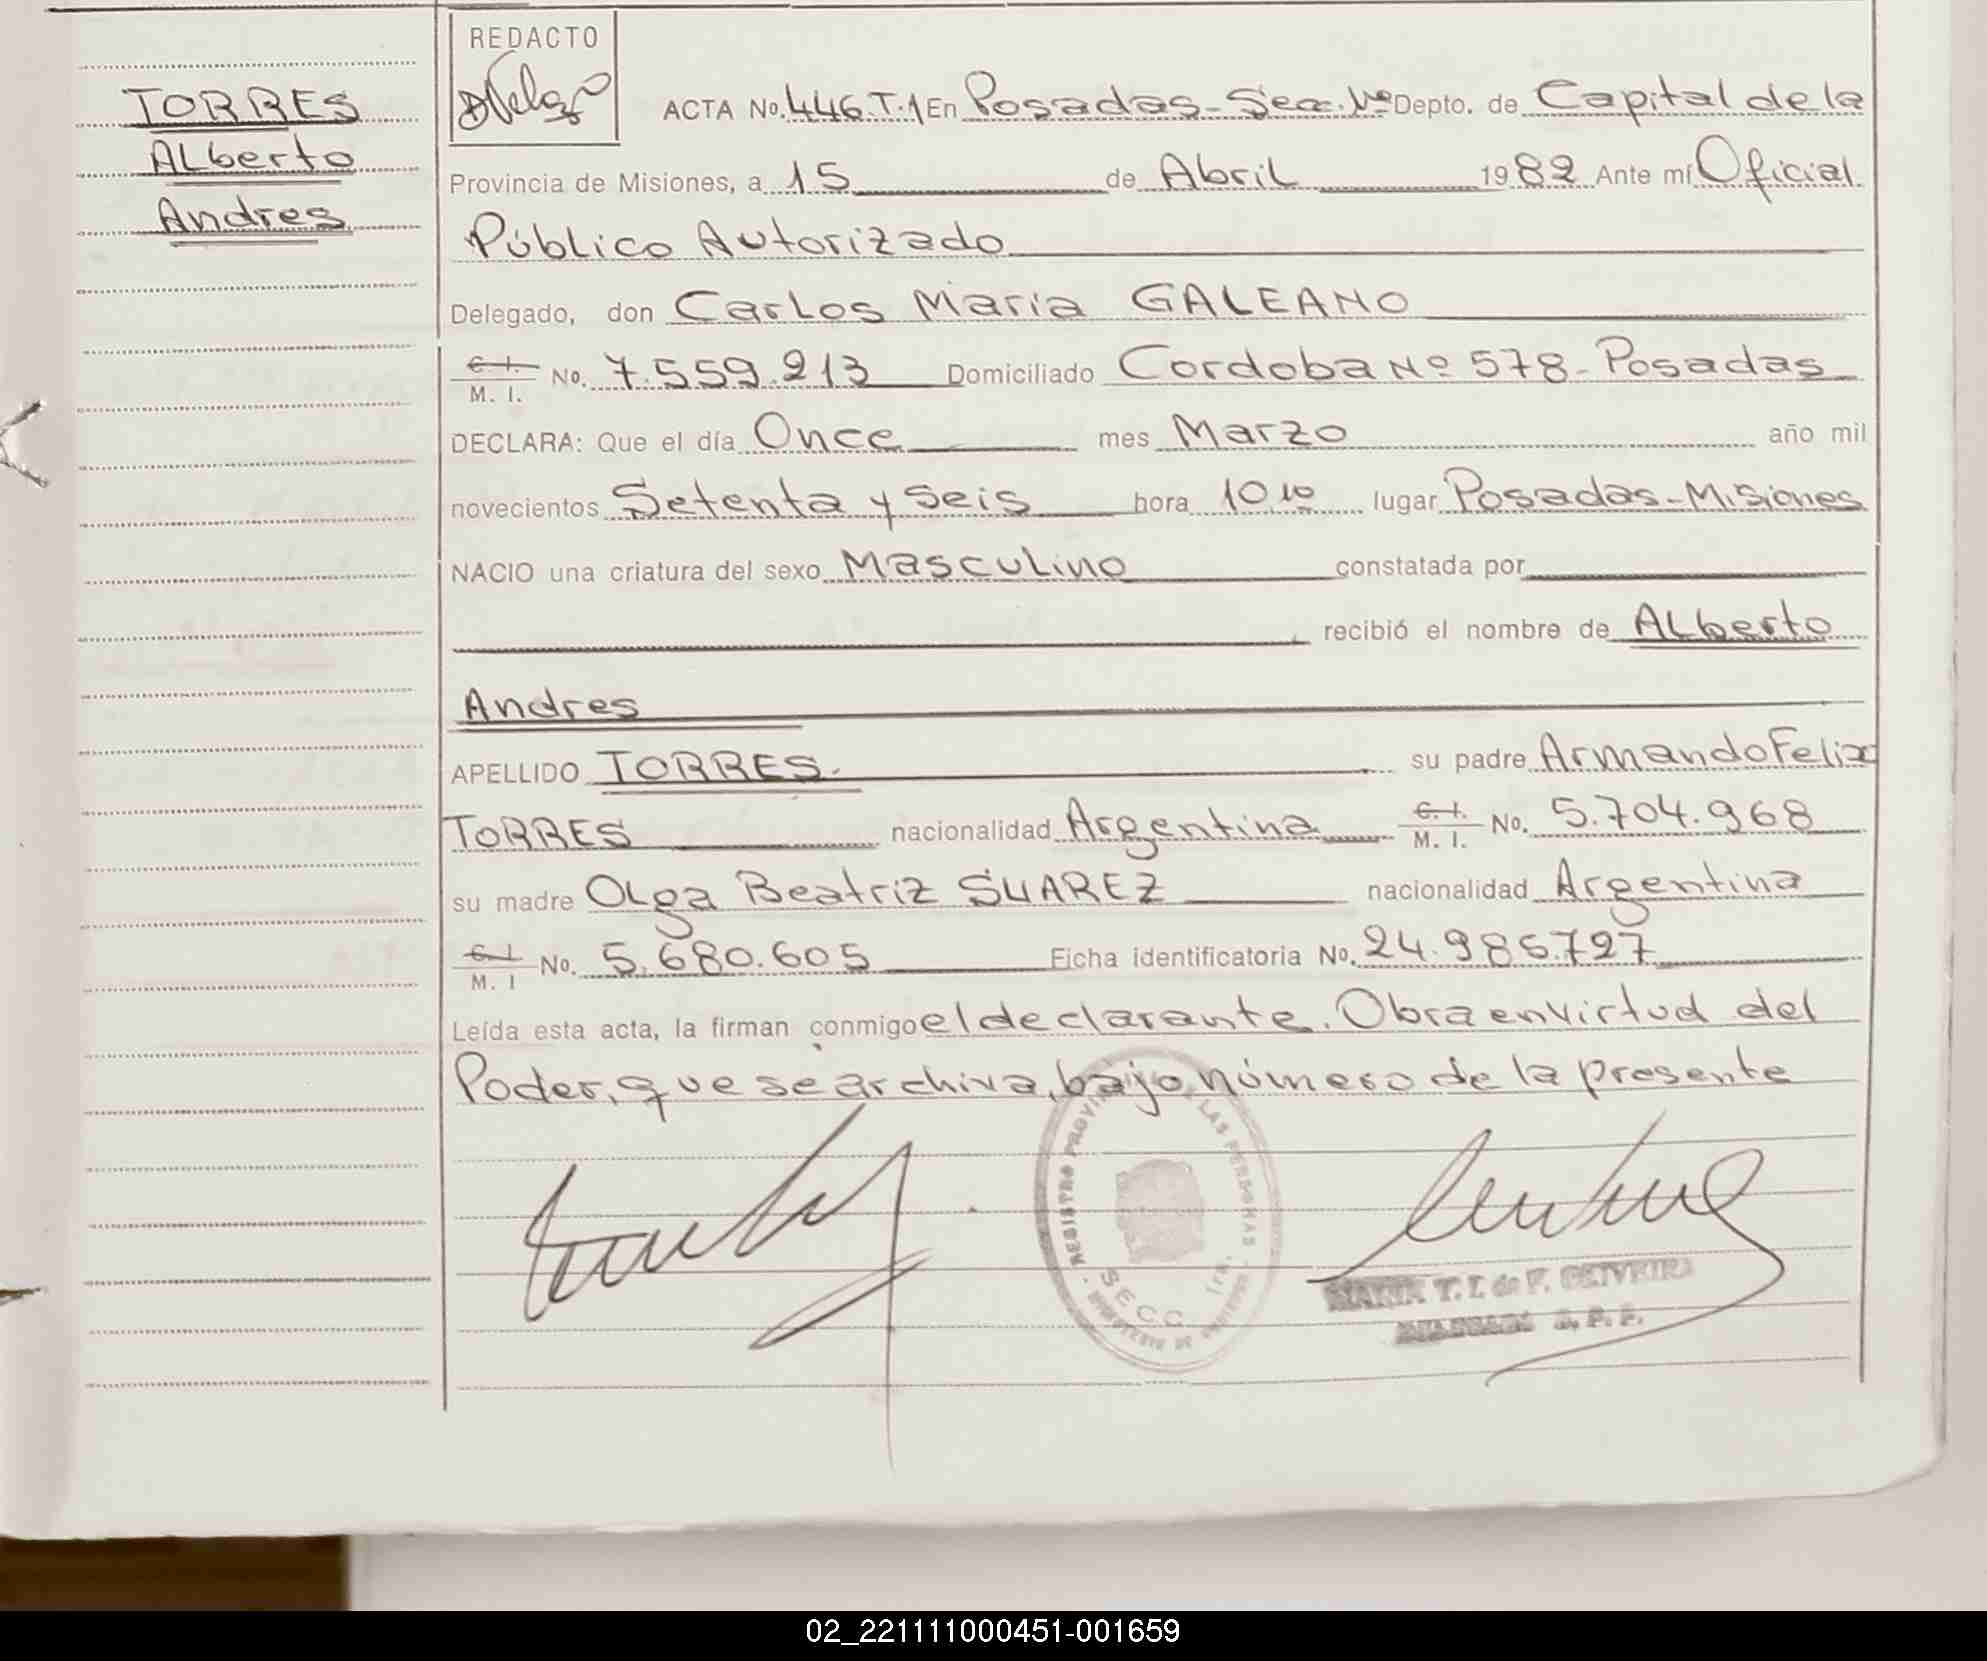 TORRES
Alberto
Andres
REDACTO
ACTA No. 446.T.1 En Posadas-Sec. 1ª Depto. de Capital de la
Provincia de Misiones, a 15 de Abril 1982 Ante mí Oficial
Público Autorizado
Delegado, don Carlos Maria GALEANO
C. I.
M. I. No. 7.559.213 Domiciliado Cordoba Nº 578-Posadas
DECLARA: Que el día Once mes Marzo año mil
novecientos Setenta y Seis hora 10 10 lugar Posadas-Misiones
NACIO una criatura del sexo Masculino constatada por
recibió el nombre de Alberto
Andres
APELLIDO TORRES. su padre Armando Felix
TORRES nacionalidad Argentina C. I.
M. I. No. 5.704.968
su madre Olga Beatriz SUAREZ nacionalidad Argentina
C. I
M. I No. 5.680.605 Ficha identificatoria No. 24.985.727
Leída esta acta, la firman conmigo el declarante. Obra en virtud del
Poder, que se archiva, bajo número de la presente
REGISTRO PROVINCIAL DE LAS PERSONAS
SECC. 1ra.
MARIA T. I. de F. OLIVEIRA
02_221111000451-001659